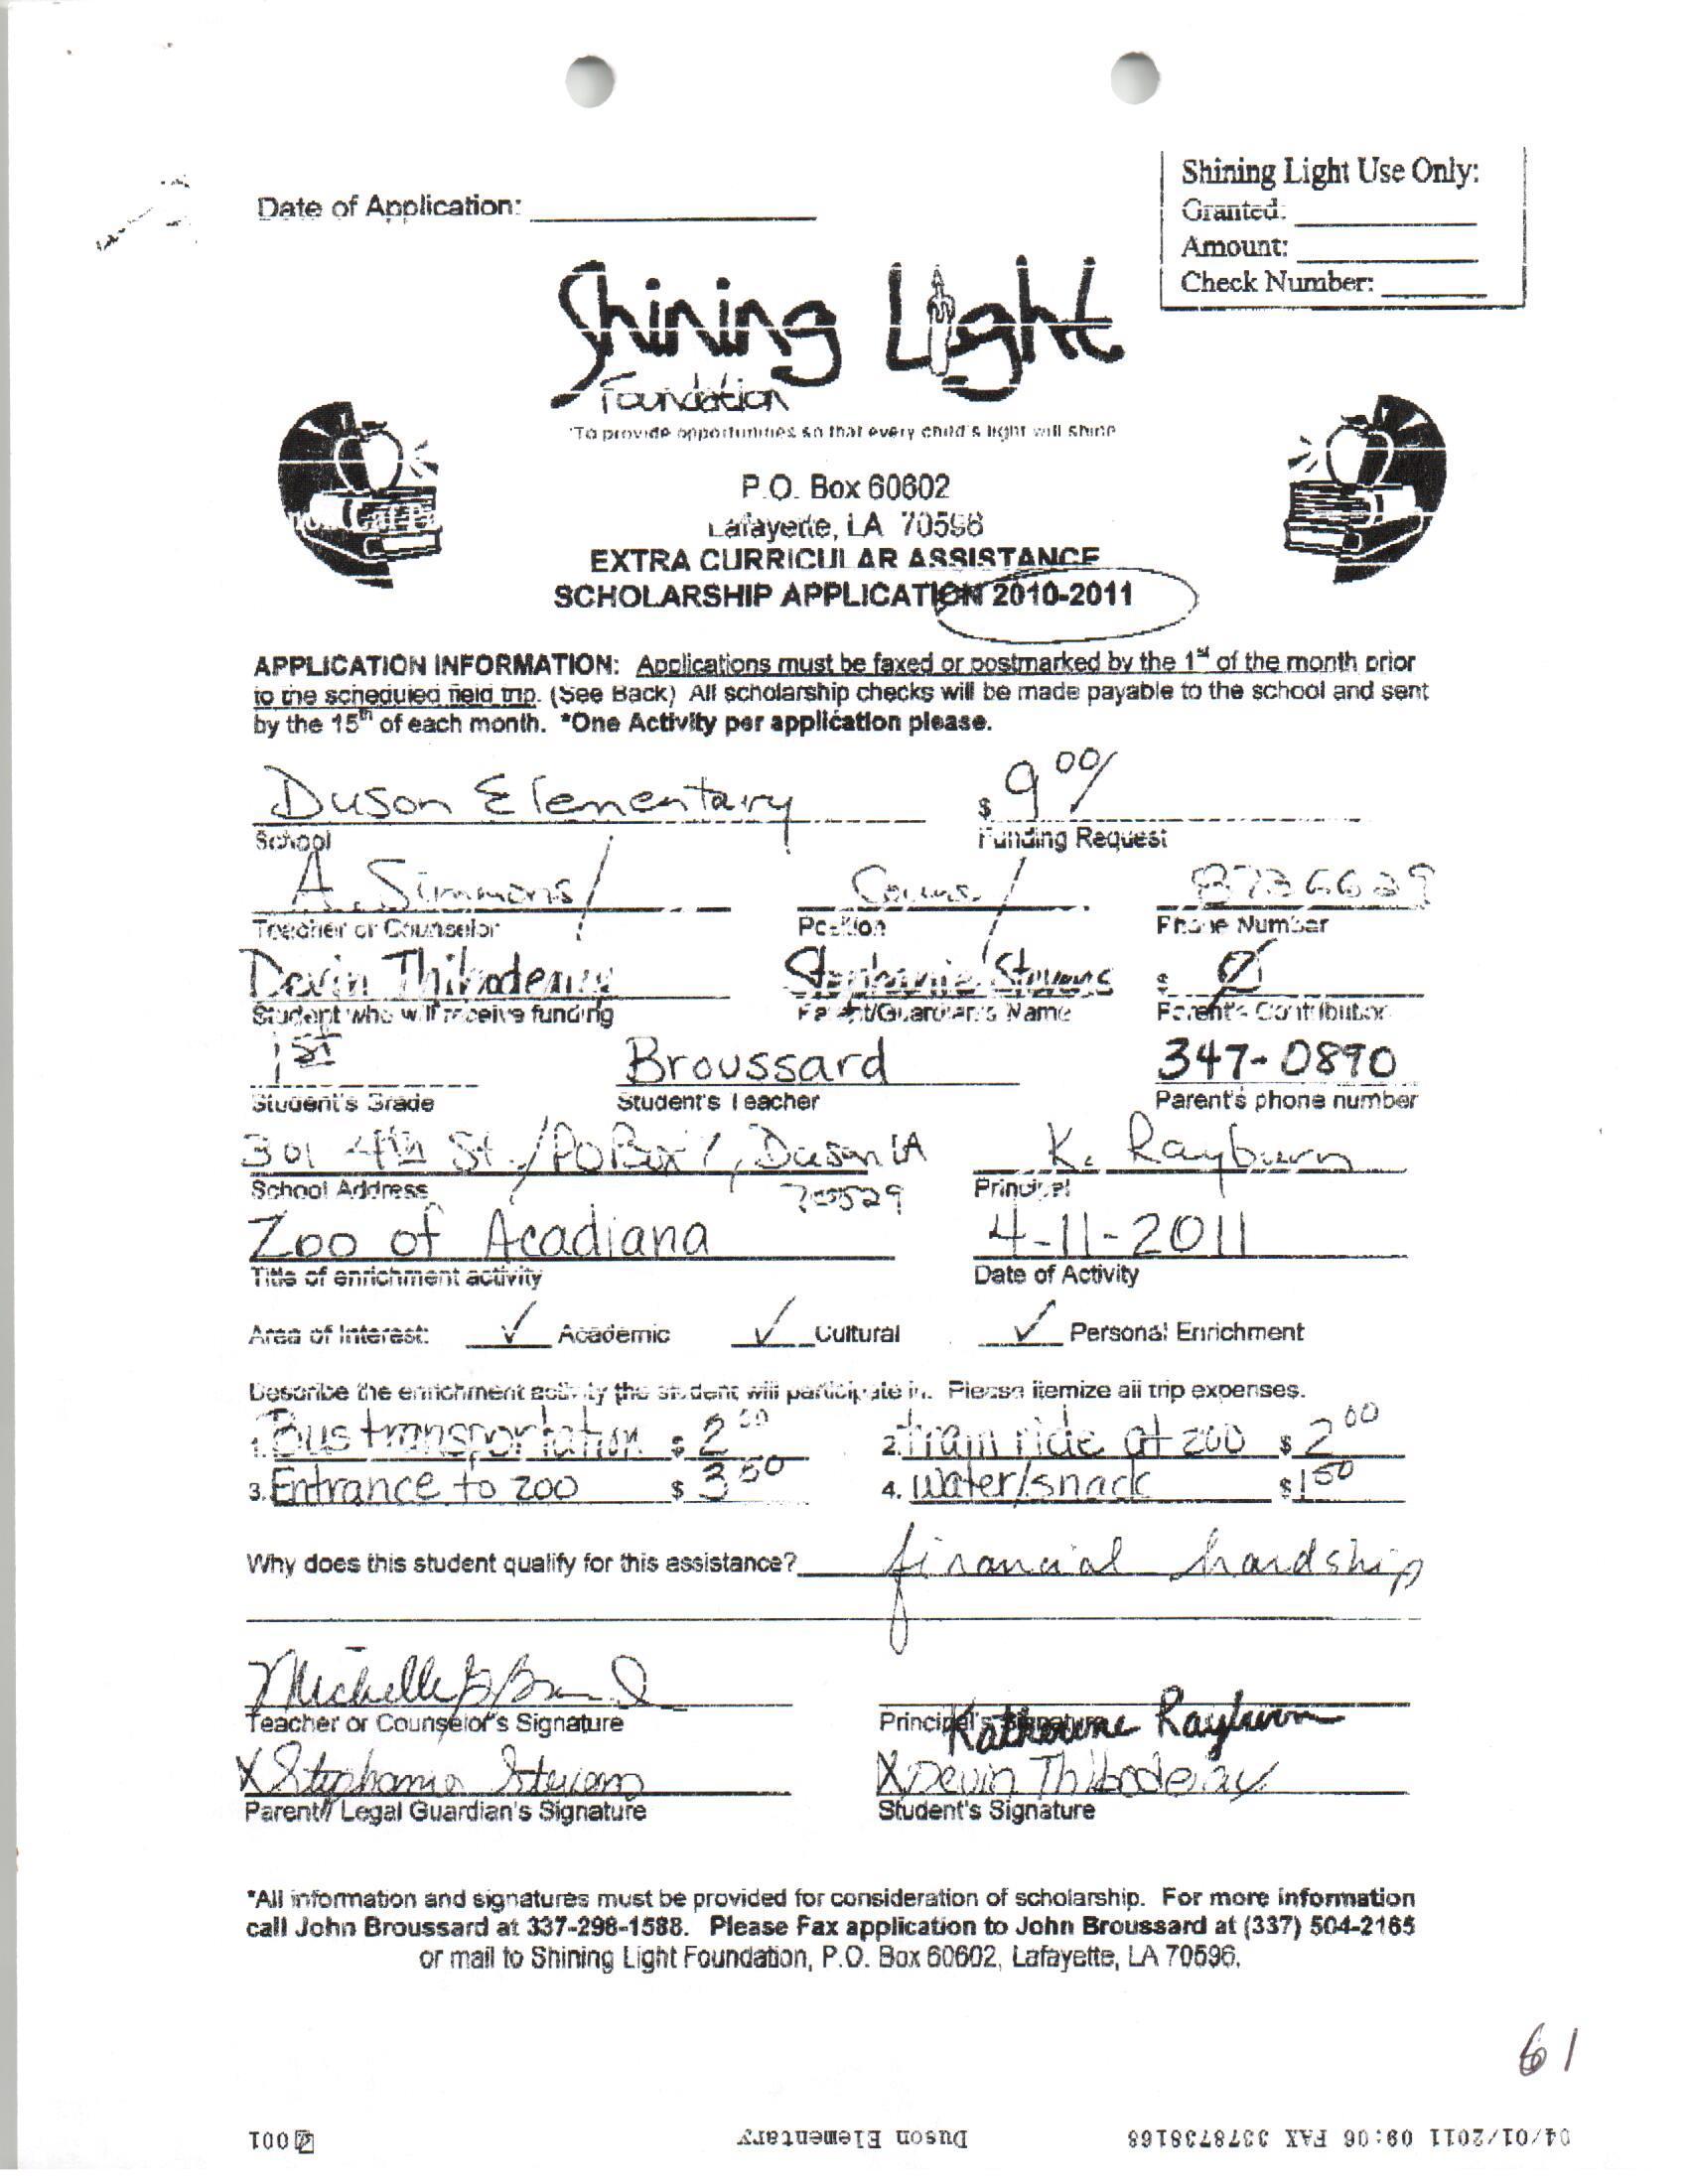 Date of Application:
Shining Light Use Only:
Granted:
Amount:
Check Number:
Shining Light
Foundation
"To provide opportunities so that every child's light will shine
P.O. Box 60602
Lafayette, LA 70598
EXTRA CURRICULAR ASSISTANCE
SCHOLARSHIP APPLICATION 2010-2011
APPLICATION INFORMATION: Applications must be faxed or postmarked by the 1st of the month prior
to the scheduled field trip. (See Back) All scholarship checks will be made payable to the school and sent
by the 15th of each month. *One Activity per application please.
Duson Elementary $ 9 00/
School Funding Request
A. Simmons Couns. 8736629
Teacher or Counselor Position Phone Number
Devin Thibodeaux Stephanie Stevens $ 0
Student who will receive funding Parent/Guardian's Name Parent's Contribution
1st Broussard 347-0890
Student's Grade Student's Teacher Parent's phone number
301 4th St./PO Box 7, Duson LA K. Rayburn
School Address 70529 Principal
Zoo of Acadiana 4-11-2011
Title of enrichment activity Date of Activity
Area of Interest: ✓ Academic ✓ Cultural ✓ Personal Enrichment
Describe the enrichment activity the student will participate in. Please itemize all trip expenses.
1. Bus transportation $ 2 00 2. train ride at zoo $ 2 00
3. Entrance to zoo $ 3 50 4. water/snack $ 1 50
Why does this student qualify for this assistance? financial hardship
Michelle B
Teacher or Counselor's Signature Principal's Signature Katherine Rayburn
X Stephanie Stevens X Devin Thibodeaux
Parent// Legal Guardian's Signature Student's Signature
*All information and signatures must be provided for consideration of scholarship. For more information
call John Broussard at 337-298-1588. Please Fax application to John Broussard at (337) 504-2165
or mail to Shining Light Foundation, P.O. Box 60602, Lafayette, LA 70596.
61
04/01/2011 09:06 FAX 3378738168 Duson Elementary 001